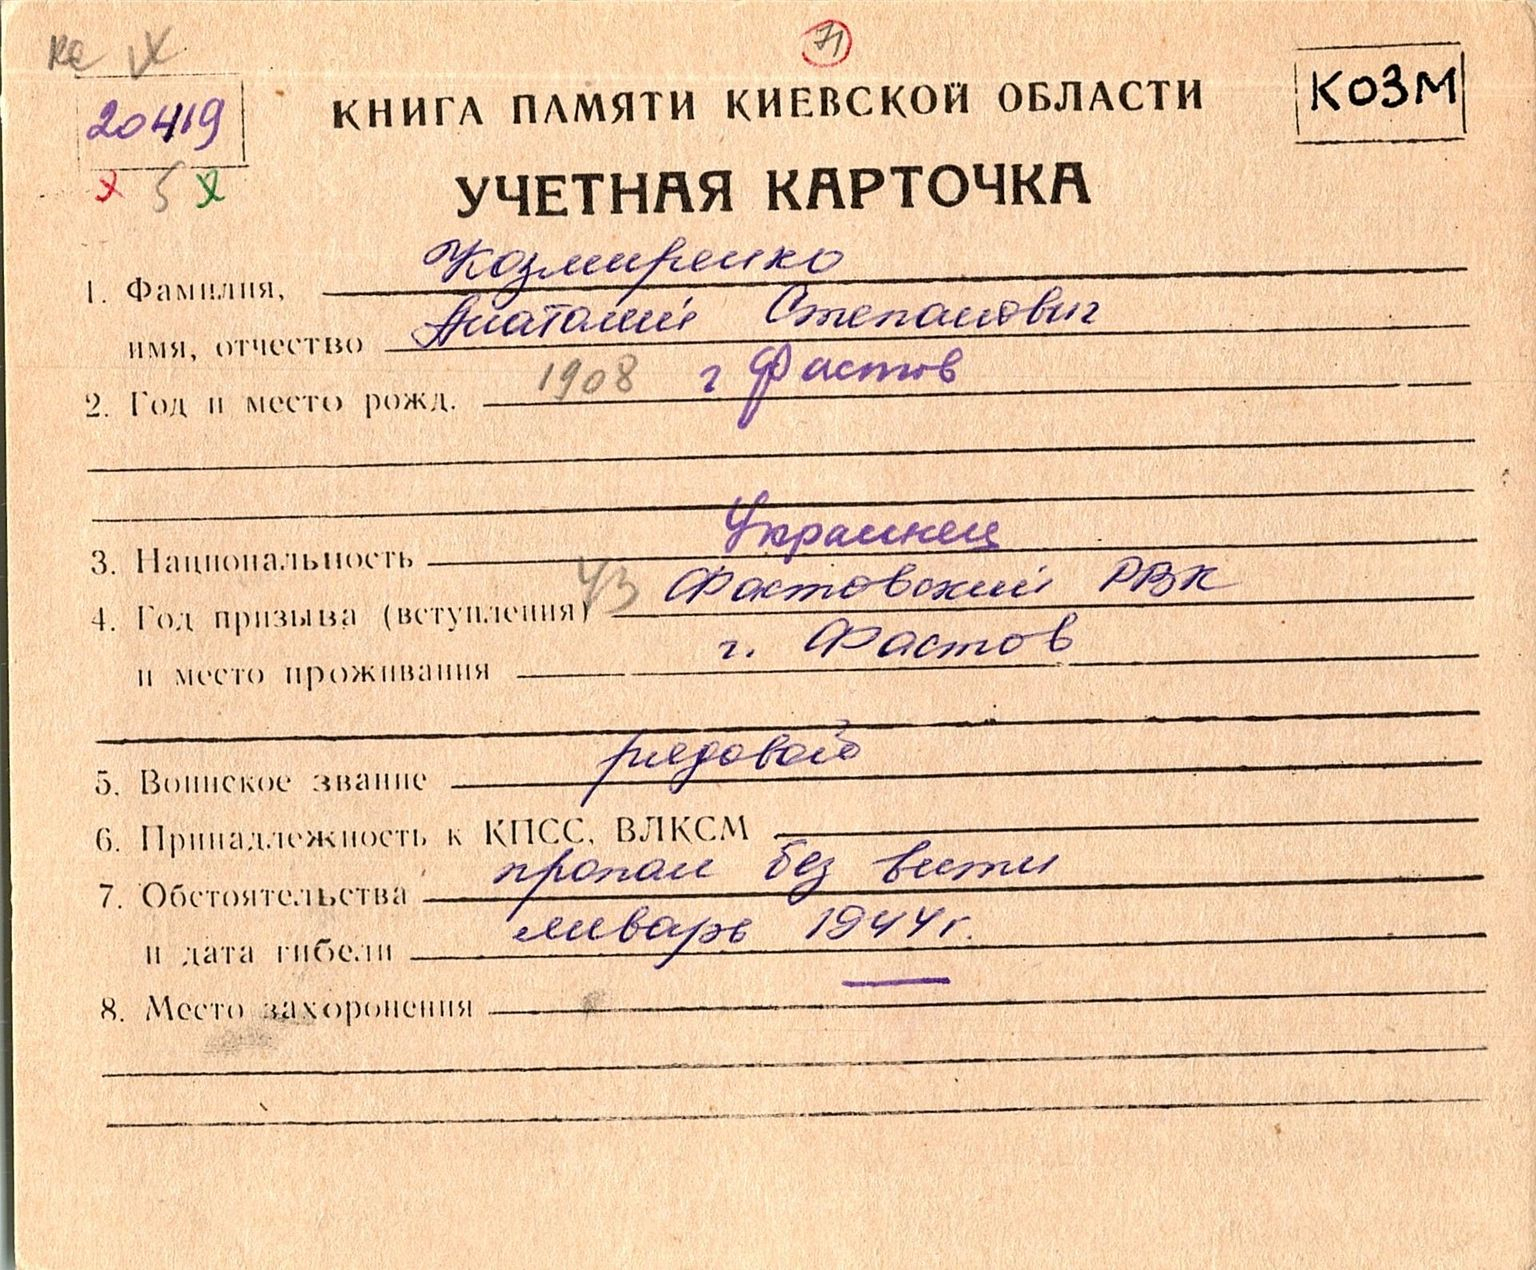 71
20419
КНИГА ПАМЯТИ КИЕВСКОЙ ОБЛАСТИ
КОЗМ
х 5 х
УЧЕТНАЯ КАРТОЧКА
1. Фамилия, Козмиренко
имя, отчество Анатолий Степанович
2. Год и место рожд. 1908 г Фастов
3. Национальность Украинец
4. Год призыва (вступления) 43 Фастовский РВК
и место проживания г. Фастов
5. Воинское звание рядовой
6. Принадлежность к КПСС, ВЛКСМ
7. Обстоятельства пропал без вести
и дата гибели январь 1944 г.
8. Место захоронения